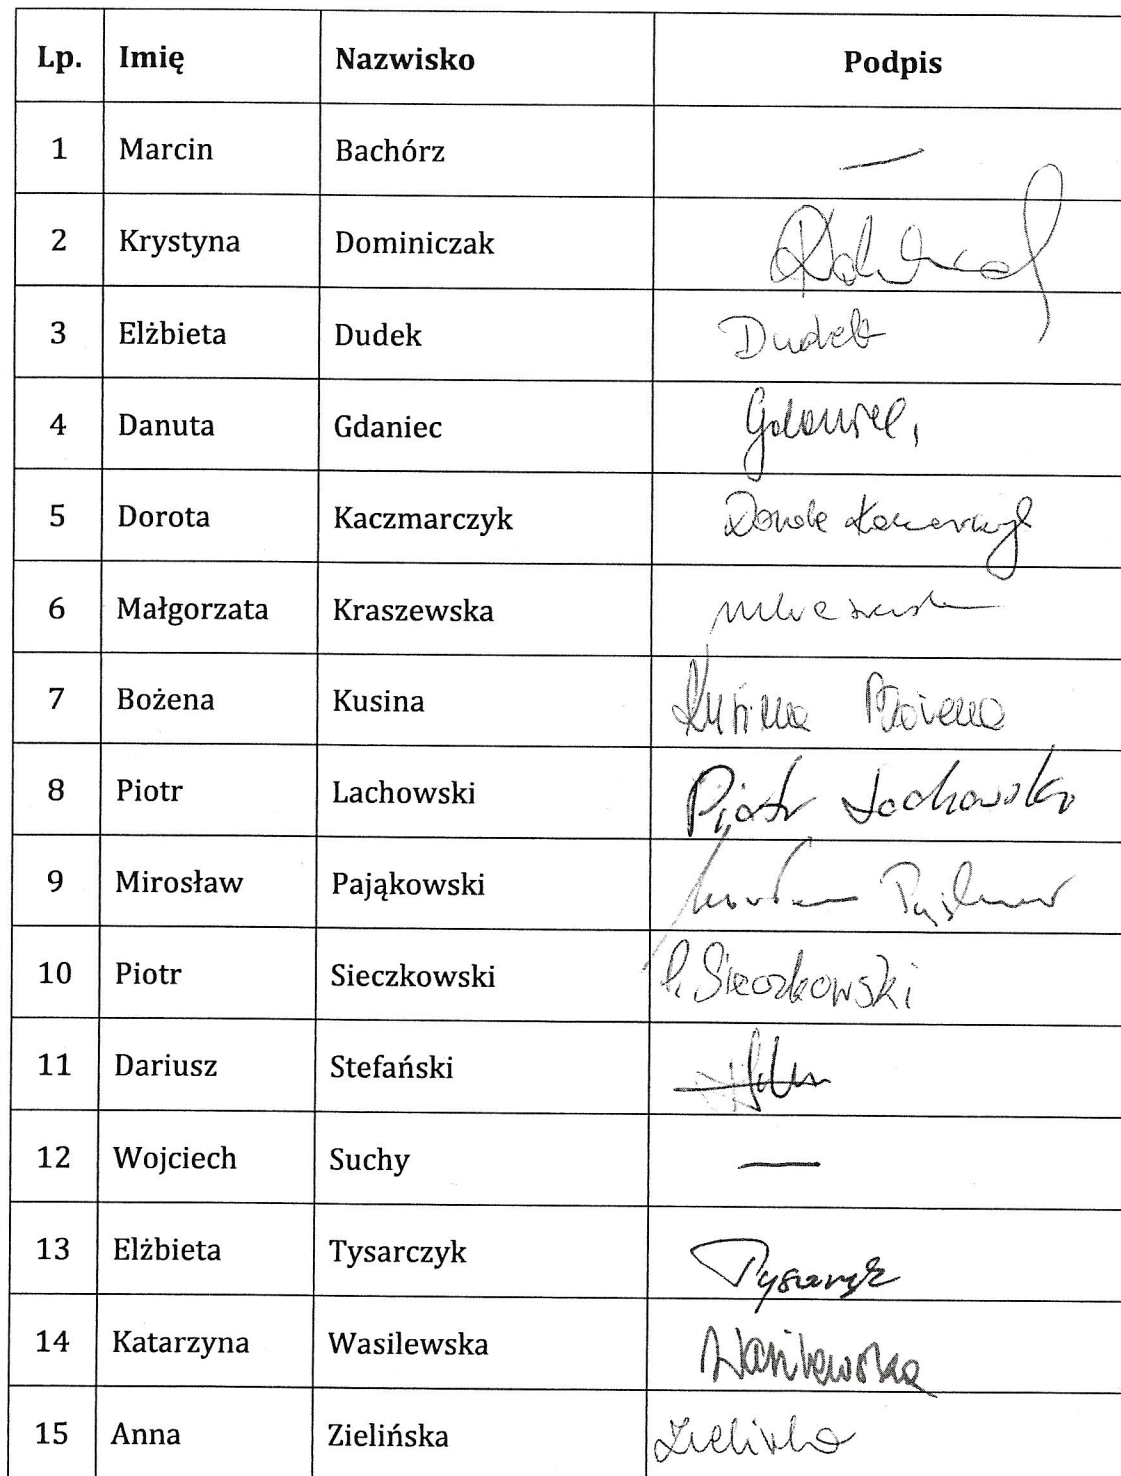 Lp. Imię Nazwisko Podpis
1 Marcin Bachórz —
2 Krystyna Dominiczak
3 Elżbieta Dudek Dudek
4 Danuta Gdaniec Gdaniec
5 Dorota Kaczmarczyk Dorota Kaczmarczyk
6 Małgorzata Kraszewska
7 Bożena Kusina Kusina Bożena
8 Piotr Lachowski Piotr Lachowski
9 Mirosław Pająkowski
10 Piotr Sieczkowski P. Sieczkowski
11 Dariusz Stefański
12 Wojciech Suchy —
13 Elżbieta Tysarczyk
14 Katarzyna Wasilewska Wasilewska
15 Anna Zielińska